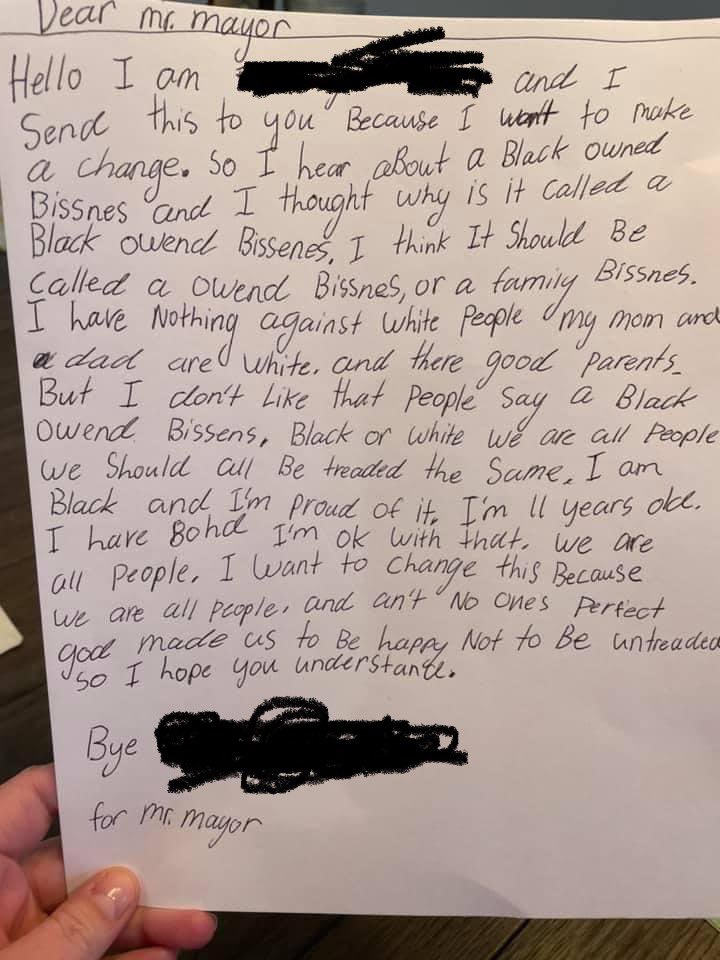 Dear mr. mayor
Hello I am and I
Send this to you Because I want to make
a change. So I hear about a Black owned
Bissnes and I thought why is it called a
Black owend Bissenes, I think It Should Be
Called a owend Bissnes, or a family Bissnes.
I have Nothing against white People my mom and
dad are white. and there good parents.
But I don't Like that People Say a Black
owend Bissens, Black or white we are all People
we Should all Be treaded the Same. I am
Black and I'm Proud of it. I'm 11 years old.
I have 80hd I'm ok with that. we are
all People. I want to change this Because
we are all people. and an't No ones Perfect
god made us to Be happy Not to Be untreaded
so I hope you understande.
Bye
for mr. mayor